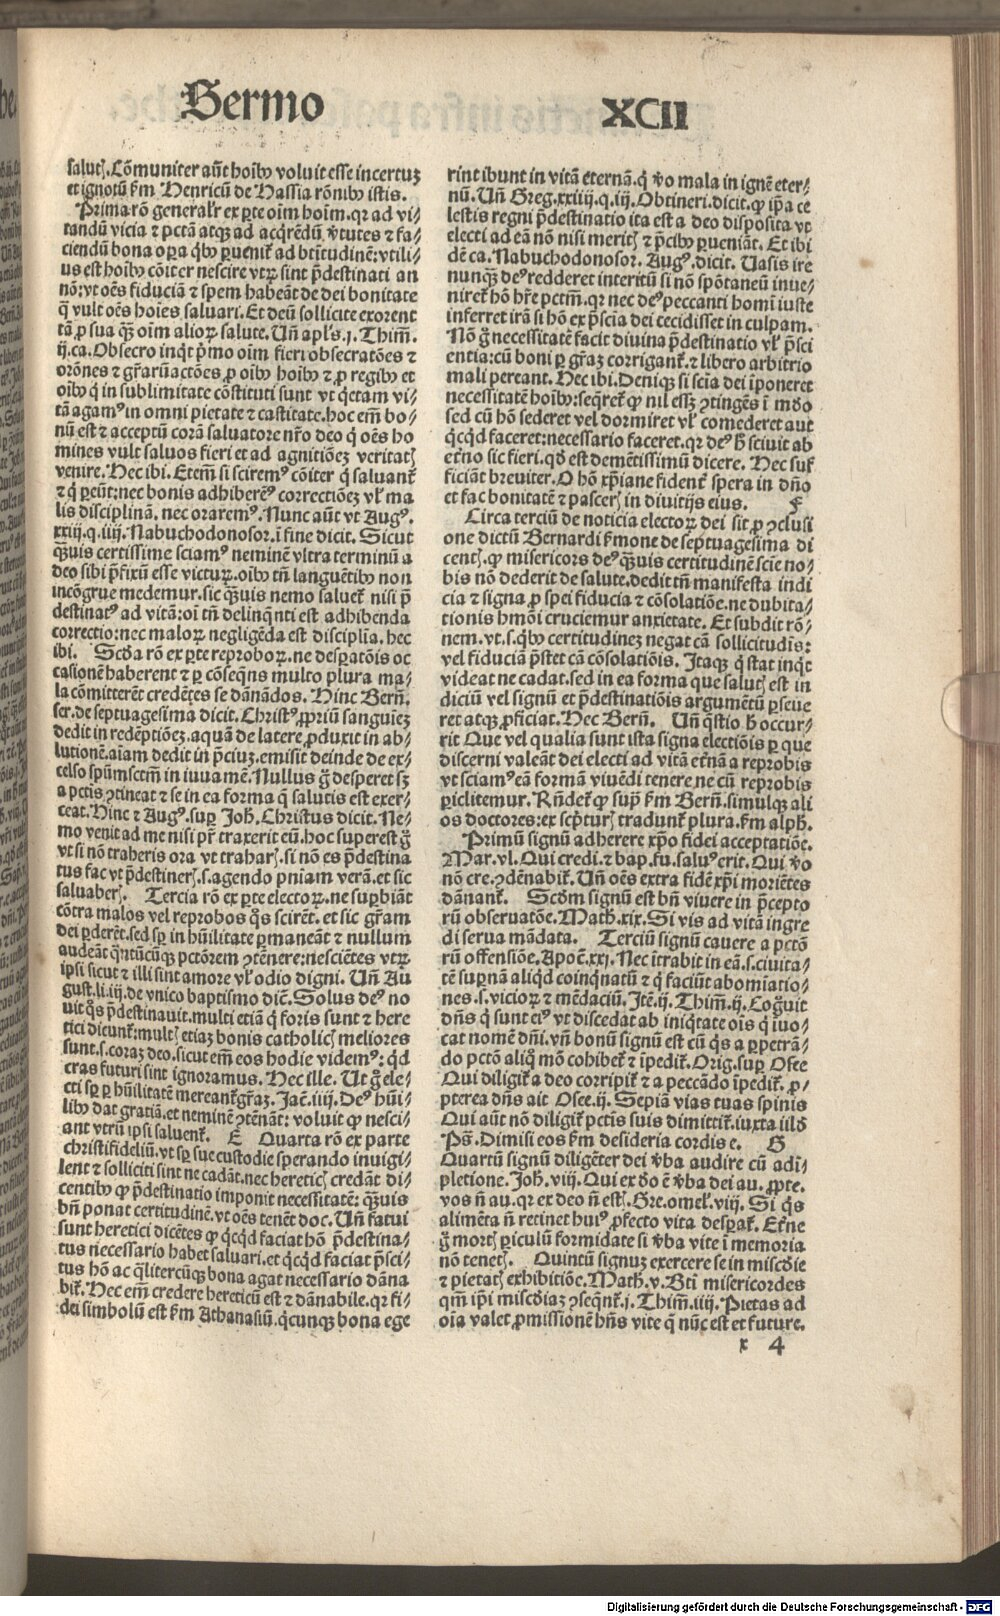 Sermo XCII
salutꝭ. Cōmuniter aūt hoībꝰ voluit esse incertuȝ
et ignotū ẜm Henricū de Hassia rōnibꝰ istis.
Prima rō general'r ex ꝑte oīm hoīm. qꝛ ad vi⸗
tandū vicia ⁊ pctā atqȝ ad acq̄rēdū v̓tutes ⁊ fa⸗
ciendū bona oꝑa q̇bꝰ ꝑuenit̄ ad btītudinē: vtili⸗
us est hoībꝰ cōiter nescire vtꝝ sint p̄destinati an
nō: vt oēs fiduciā ⁊ spem habeāt de dei bonitate
q̄ vult oēs hoīes saluari. Et deū sollicite exorent
tā ꝓ sua qȝ oīm alioꝝ salute. Un̄ apl's .j. Thim̄.
ij. ca. Obsecro inq̇t p̄mo oīm fieri obsecratōes ⁊
orōnes ⁊ gr̄aꝝ actōes ꝓ oībꝰ hoībꝰ ⁊ ꝓ regibꝰ et
oībꝰ q̇ in sublimitate cōstituti sunt vt q̇etam vi⸗
tā agamꝰ in omni pietate ⁊ castitate. hoc em̄ bo⸗
nū est ⁊ acceptū corā saluatore nr̄o deo q̇ oēs ho
mines vult saluos fieri et ad agnitiōeȝ veritatꝭ
venire. Hec ibi. Etem̄ si sciremꝰ cōiter q̇ saluant̄
⁊ q̇ ꝑeūt: nec bonis adhiberēꝰ correctiōeȝ vl' ma
lis disciplinā. nec oraremꝰ. Nunc aūt vt Augꝰ.
xxiij. q. iiij. Nabuchodonosor. ī fine dicit. Sicut
q̄ȝuis certissime sciamꝰ neminē vltra terminū a
deo sibi p̄fixū esse victuꝝ. oībꝰ tn̄ languētibꝰ non
incōgrue medemur. sic q̄ȝuis nemo saluet̄ nisi p̄
destinatꝰ ad vitā: oī tn̄ delinq̄nti est adhibenda
correctio: nec maloꝝ negligēda est disciplīa. hec
ibi. Scd̓a rō ex ꝑte reproboꝝ. ne desꝑatōis oc
casionē haberent ⁊ ꝑ cōseq̄ns multo plura ma⸗
la cōmitterēt credētes se dānādos. Hinc Bern̄.
ser. de septuagesima dicit. Christꝰ ꝓpriū sanguieȝ
dedit in redēptiōeȝ. aquā de latere ꝓduxit in ab⸗
lutionē. aīam dedit in p̄ciuȝ. emisit deinde de ex⸗
celso spūmsctm̄ in iuuamē. Nullus g̊ desperet sȝ
a pctīs ꝯtineat ⁊ se in ea forma q̄ salutis est exer⸗
ceat. Hinc ⁊ Augꝰ. suꝑ Joh̄. Christus dicit. Ne⸗
mo venit ad me nisi pr̄ traxerit eū. hoc superest g̊
vt si nō traheris ora vt traharꝭ. si nō es p̄destina
tus fac vt p̄destinerꝭ. s. agendo pniam verā. et sic
saluaberꝭ. Tercia rō ex ꝑte electoꝝ. ne suꝑbiāt
cōtra malos vel reprobos q̇s scirēt. et sic gr̄am
dei ꝑderēt. sed sꝑ in hūilitate ꝑmaneāt ⁊ nullum
audeāt q̄ntūcūqȝ pctōrem ꝯtēnere: nesciētes vtꝝ
ipsi sicut ⁊ illi sint amore vl' odio digni. Un̄ Au
gust. li. iij. de vnico baptismo dic̄. Solus deꝰ no
uit q̇s p̄destinauit. multi etiā q̇ foris sunt ⁊ here
tici dicunt̄: multꝭ etiaȝ bonis catholicꝭ meliores
sunt. s. coraȝ deo. sicut em̄ eos hodie videmꝰ: q̇d
cras futuri sint ignoramus. Hec ille. Ut g̊ ele⸗
cti sꝑ ꝑ hūilitatē mereant̄ gr̄aȝ. Jac̄. iiij. Deꝰ hūi⸗
libꝰ dat gratiā. et neminē ꝯtēnāt: voluit ꝙ nesci⸗
ant vtrū ipsi saluent̄. E Quarta rō ex parte
christifideliū. vt sꝑ sue custodie sperando inuigi⸗
lent ⁊ solliciti sint ne cadāt. nec hereticꝭ credāt di⸗
centibꝰ ꝙ p̄destinatio imponit necessitatē: q̄ȝuis
bn̄ ponat certitudinē. vt oēs tenēt doc. Un̄ fatui
sunt heretici dicētes ꝙ q̇cq̇d faciat hō p̄destina⸗
tus necessario habet saluari. et q̇cq̇d faciat p̄sci⸗
tus hō ac q̄litercūqȝ bona agat necessario dāna
bit̄. Hec em̄ credere hereticū est ⁊ dānabile. qꝛ fi⸗
dei simbolū est ẜm Athanasiū. q̇cunqȝ bona ege
rint ibunt in vitā eternā. q̇ v̓o mala in ignē eter⸗
nū. Un̄ Greg. xxiiij. q. iij. Obtineri. dicit. ꝙ ip̄a ce
lestis regni p̄destinatio ita est a deo disposita vt
electi ad eā nō nisi meritꝭ ⁊ p̄cibꝰ ꝑueniāt. Et ibi
dē ca. Nabuchodonosor. Augꝰ. dicit. Uasis ire
nunqȝ deꝰ redderet interitū si nō spōtaneū inue⸗
niret̄ hō hr̄e pctm̄. qꝛ nec deꝰ peccanti homī iuste
inferret irā si hō ex p̄scia dei cecidisset in culpam.
Nō g̊ necessitatē facit diuina p̄destinatio vl' p̄sci
entia: cū boni ꝑ gr̄aȝ corrigant̄. ⁊ libero arbitrio
mali pereant. Hec ibi. Deniqȝ si scia dei īponeret
necessitatē hoībꝰ: seq̄ret̄ ꝙ nil essȝ ꝯtingēs ī mūdo
sed cū hō sederet vel dormiret vl' comederet aut
q̇cq̇d faceret: necessario faceret. qꝛ deꝰ h̄ sciuit ab
et̓no sic fieri. qd̓ est demētissimū dicere. Hec suf
ficiāt breuiter. O hō xp̄iane fident̄ spera in dn̄o
et fac bonitatē ⁊ pascerꝭ in diuitijs eius. F
Circa terciū de noticia electoꝝ dei sit ꝓ ꝯclusi
one dictū Bernardi ẜmone de septuagesima di
centꝭ. ꝙ misericors deꝰ q̄ȝuis certitudinē scie no⸗
bis nō dederit de salute. dedit tn̄ manifesta indi
cia ⁊ signa ꝓ spei fiducia ⁊ cōsolatiōe. ne dubita⸗
tionis hmōi cruciemur anxietate. Et subdit rō⸗
nem. vt. s. q̇bꝰ certitudineȝ negat cā sollicitudīs:
vel fiduciā p̄stet cā cōsolatiōis. Itaqȝ q̇ stat inq̇t
videat ne cadat. sed in ea forma que salutꝭ est in
diciū vel signū et p̄destinatiōis argumētū ꝑseue
ret atqȝ ꝓficiat. Hec Bern̄. Un̄ q̄stio h̄ occur⸗
rit Que vel qualia sunt ista signa electiōis ꝑ que
discerni valeāt dei electi ad vitā et̓nā a reprobis
vt sciamꝰ eā formā viuēdi tenere ne cū reprobis
ꝑiclitemur. Rn̄det̄ ꝙ sup̄ ẜm Bern̄. simulqȝ ali
os doctores: ex sc̄pturꝭ tradunt̄ plura. ẜm alph̄.
Primū signū adherere xp̄o fidei acceptatiōe.
Mar. vl. Qui credi. ⁊ bap. fu. saluꝰ erit. Qui v̓o
nō cre. ꝯdēnabit̄. Un̄ oēs extra fidē xp̄i moriētes
dānant̄. Scd̓m signū est bn̄ viuere in p̄cepto
rū obseruatōe. Math̄. xix. Si vis ad vitā ingre
di serua mādata. Terciū signū cauere a pctō
rū offensiōe. Apoc̄. xxj. Nec ītrabit in eā. s. ciuita⸗
tē suꝑnā aliq̇d coinq̇natū ⁊ q̇ faciūt abomīatio⸗
nes. s. vicioꝝ ⁊ mēdaciū. Itē. ij. Thim̄. ij. Cog̊uit
dn̄s q̇ sunt eiꝰ vt discedat ab iniq̇tate oīs q̇ īuo⸗
cat nomē dn̄i. vn̄ bonū signū est cū q̇s a ꝑpetrā⸗
do pctō aliq̊ mō cohibet̄ ⁊ īpedit̄. Orig. suꝑ Osee
Qui diligit̄ a deo corripit̄ ⁊ a peccādo īpedit̄. ꝓ⸗
pterea dn̄s ait Osee. ij. Sepiā vias tuas spinis
Qui aūt nō diligit̄ pctīs suis dimittit̄. iuxta illd̓
Ps̄. Dimisi eos ẜm desideria cordis e. G
Quartū signū diligēter dei v̓ba audire cū adī⸗
pletione. Joh̄. viij. Qui ex d̓o ē v̓ba dei au. ꝓpte.
vos n̄ au. qꝛ ex deo n̄ estꝭ. Gre. omel̄. viij. Si q̇s
alimēta n̄ retinet huiꝰ ꝓfecto vita desꝑat̄. Et̓ne
g̊ mortꝭ ꝑiculū formidate si v̓ba vite ī memoria
nō tenetꝭ. Quintū signuȝ exercere se in misc̄die
⁊ pietatꝭ exhibitiōe. Math̄. v. Btī misericordes
qm̄ ip̄i misc̄diaȝ ꝯseq̄nt̄. j. Thim̄. iiij. Pietas ad
oīa valet ꝓmissionē hn̄s vite q̄ nūc est et future.
x 4
Digitalisierung gefördert durch die Deutsche Forschungsgemeinschaft - DFG